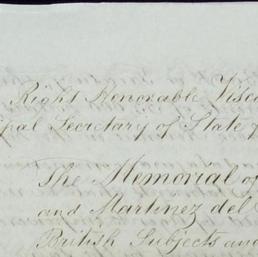 Right Honorable Visc
ipal Secretary of State
The Memorial of
and Martinez del
British Subjects and